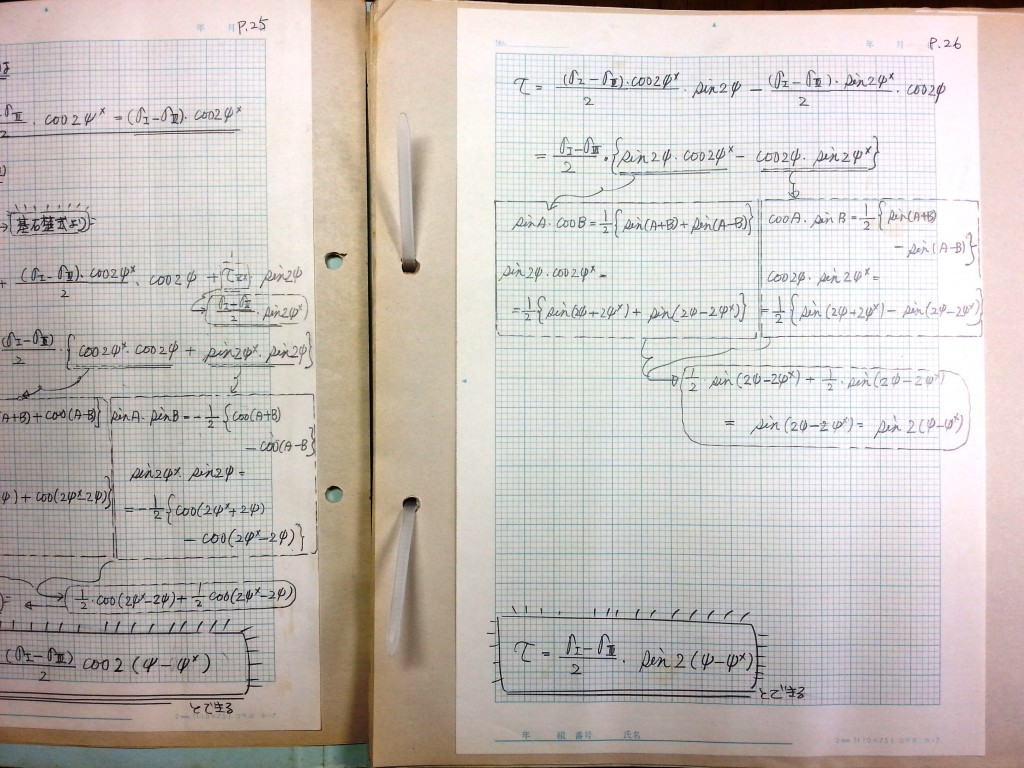 年 月 P.25
は
σⅢ/2 · cos2ψˣ = (σⅠ-σⅢ) · cos2ψˣ
基礎式より
+ (σⅠ-σⅢ)·cos2ψˣ/2 · cos2ψ + τzx · sin2ψ
(σⅠ-σⅢ/2 · sin2ψˣ)
(σⅠ-σⅢ)/2 · {cos2ψˣ·cos2ψ + sin2ψˣ·sin2ψ}
(A+B)+cos(A-B)}
sinA·sinB = -1/2{cos(A+B)
-cos(A-B)}
sin2ψˣ·sin2ψ =
ψ)+cos(2ψˣ-2ψ)}
= -1/2{cos(2ψˣ+2ψ)
-cos(2ψˣ-2ψ)}
(1/2·cos(2ψˣ-2ψ)+1/2cos(2ψˣ-2ψ))
(σⅠ-σⅢ)/2 cos2(ψ-ψˣ)
とできる
No.
年 月 P.26
τ = (σⅠ-σⅢ)·cos2ψˣ/2 · sin2ψ - (σⅠ-σⅢ)·sin2ψˣ/2 · cos2ψ
= σⅠ-σⅢ/2 · {sin2ψ·cos2ψˣ - cos2ψ·sin2ψˣ}
sinA·cosB = 1/2{sin(A+B)+sin(A-B)}
sin2ψ·cos2ψˣ =
= 1/2{sin(2ψ+2ψˣ)+sin(2ψ-2ψˣ)}
cosA·sinB = 1/2{sin(A+B)
-sin(A-B)}
cos2ψ·sin2ψˣ =
= 1/2{sin(2ψ+2ψˣ)-sin(2ψ-2ψˣ)}
1/2 sin(2ψ-2ψˣ)+1/2·sin(2ψ-2ψˣ)
= sin(2ψ-2ψˣ) = sin2(ψ-ψˣ)
τ = σⅠ-σⅢ/2 · sin2(ψ-ψˣ)
とできる
年 組 番号 氏名